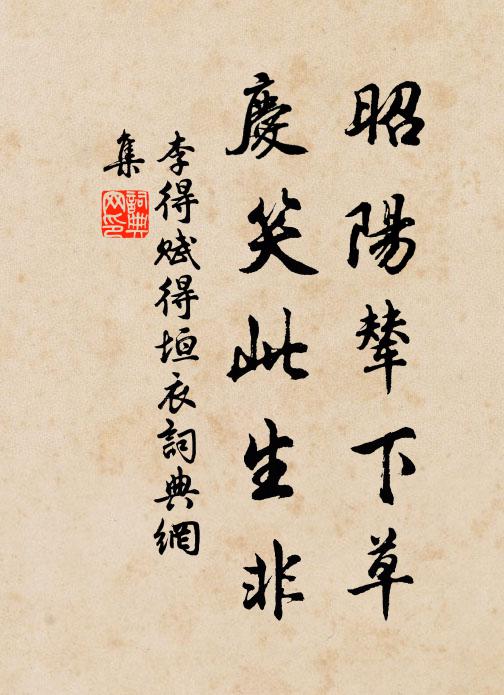 昭陽輦下草
慶笑此生非
李得賦得垣衣詞典網
集
詞典網印